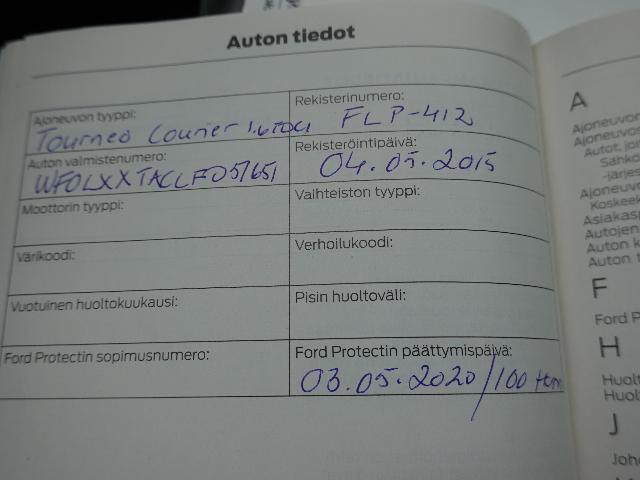 Auton tiedot
Ajoneuvon tyyppi:
Tourneo Courier 1.6 TDCI
Rekisterinumero:
FLP-412
Auton valmistenumero:
WF0LXXTACLFD57651
Rekisteröintipäivä:
04.05.2015
Moottorin tyyppi:
Vaihteiston tyyppi:
Värikoodi:
Verhoilukoodi:
Vuotuinen huoltokuukausi:
Pisin huoltoväli:
Ford Protectin sopimusnumero:
Ford Protectin päättymispäivä:
03.05.2020/100 tkm
A
Ajoneuvon
Ajoneuvo
Autot, joi
Sähkö
-järjes
Ajoneuv
Koskeek
Asiakas
Autojen
Auton k
Auton t
F
Ford P
H
Huolt
Huol
J
Joh